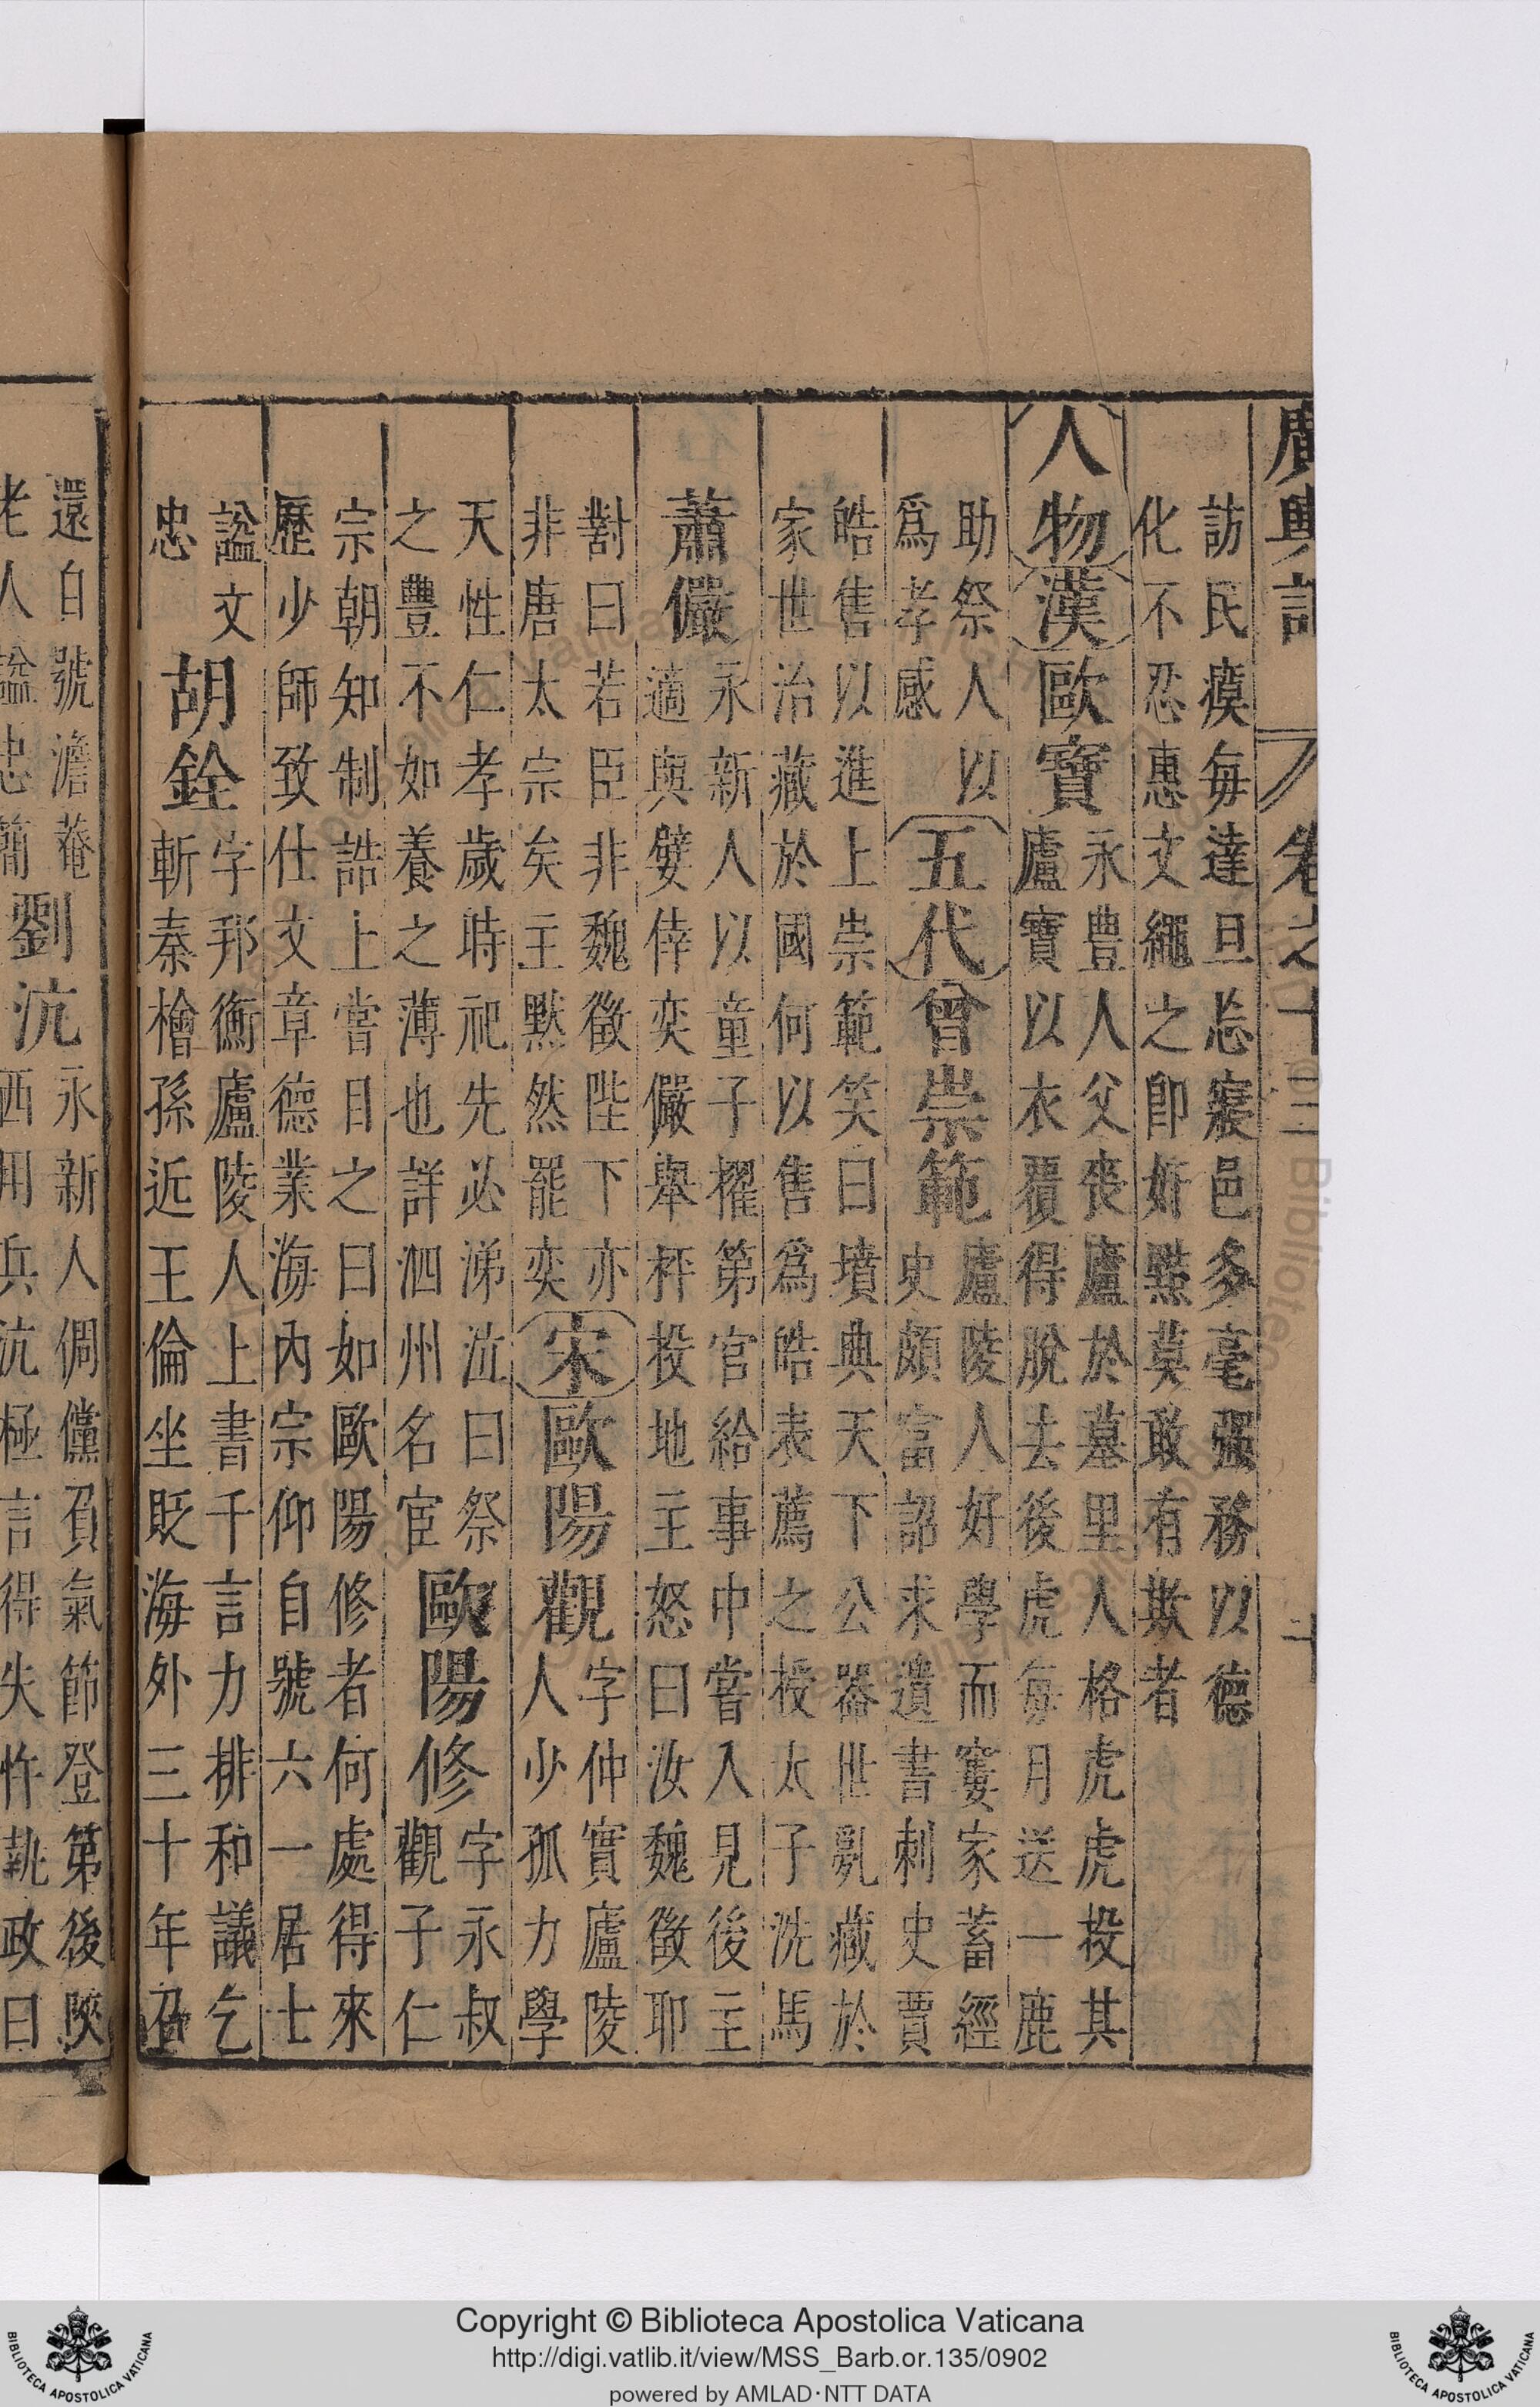 廣輿記 卷之十三 十
訪民瘼每達旦忘寢邑多毫强務以德
化不忍惠文繩之卽奸黠莫敢有欺者
人物 漢 歐寶 永豊人父喪廬於墓里人格虎虎投其
廬寶以衣覆得脫去後虎每月送一鹿
助祭人以
爲孝感
五代 曾崇範 廬陵人好學而窶家蓄經
史頗富詔求遺書刺史賈
皓售以進上崇範笑曰墳典天下公器世亂藏於
家世治藏於國何以售爲皓表薦之授太子洗馬
蕭儼 永新人以童子擢第官給事中嘗入見後主
適與嬖倖奕儼舉枰投地主怒曰汝魏徵耶
對曰若臣非魏徵陛下亦
非唐太宗矣主默然罷奕
宋 歐陽觀 字仲實廬陵
人少孤力學
天性仁孝歲時祀先必涕泣曰祭
之豐不如養之薄也詳泗州名宦
歐陽修 字永叔
觀子仁
宗朝知制誥上嘗目之曰如歐陽修者何處得來
歷少師致仕文章德業海內宗仰自號六一居士
諡文
忠
胡銓 字邦衡廬陵人上書千言力排和議乞
斬秦檜孫近王倫坐貶海外三十年召
還自號澹菴
老人諡忠簡
劉沆 永新人倜儻負氣節登第後陝
西用兵沆極言得失忤執政曰
Copyright © Biblioteca Apostolica Vaticana
http://digi.vatlib.it/view/MSS_Barb.or.135/0902
powered by AMLAD·NTT DATA
BIBLIOTECA APOSTOLICA VATICANA
BIBLIOTECA APOSTOLICA VATICANA